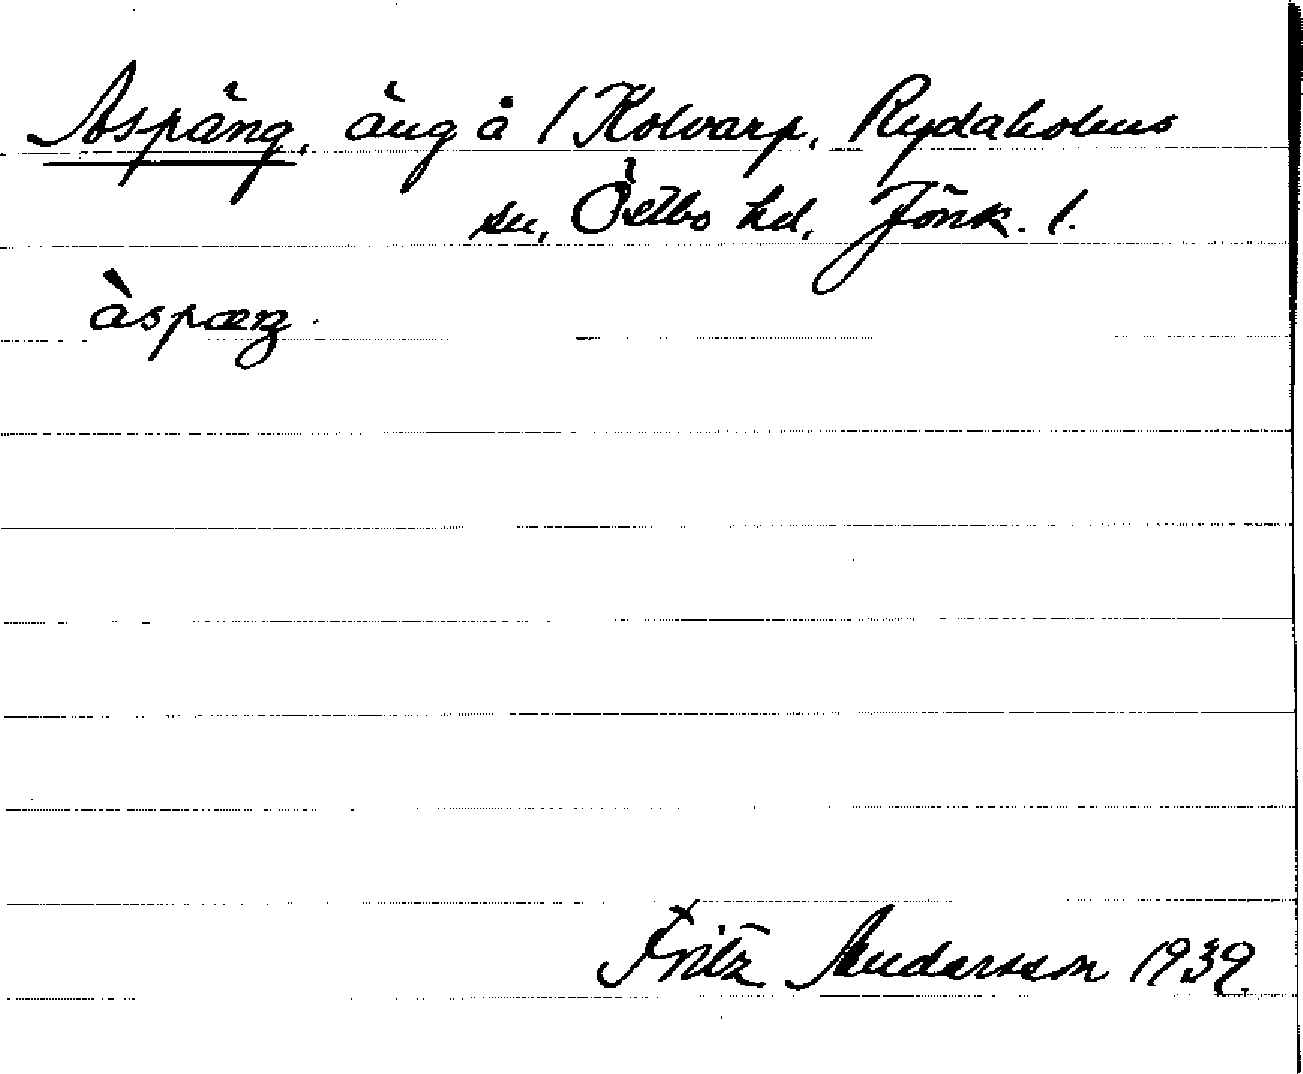 Aspäng, äng å 1 Kolvarp, Rydaholms
sn, Östbo hd, Jönk. l.
àspæŋ
Fritz Andersson 1939.